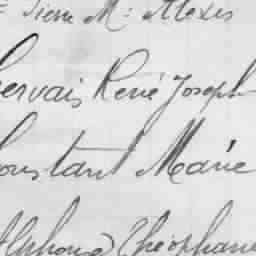 Pierre M. Alexis
Gervais René Joseph
Constant Marie
Alphonse Théophane